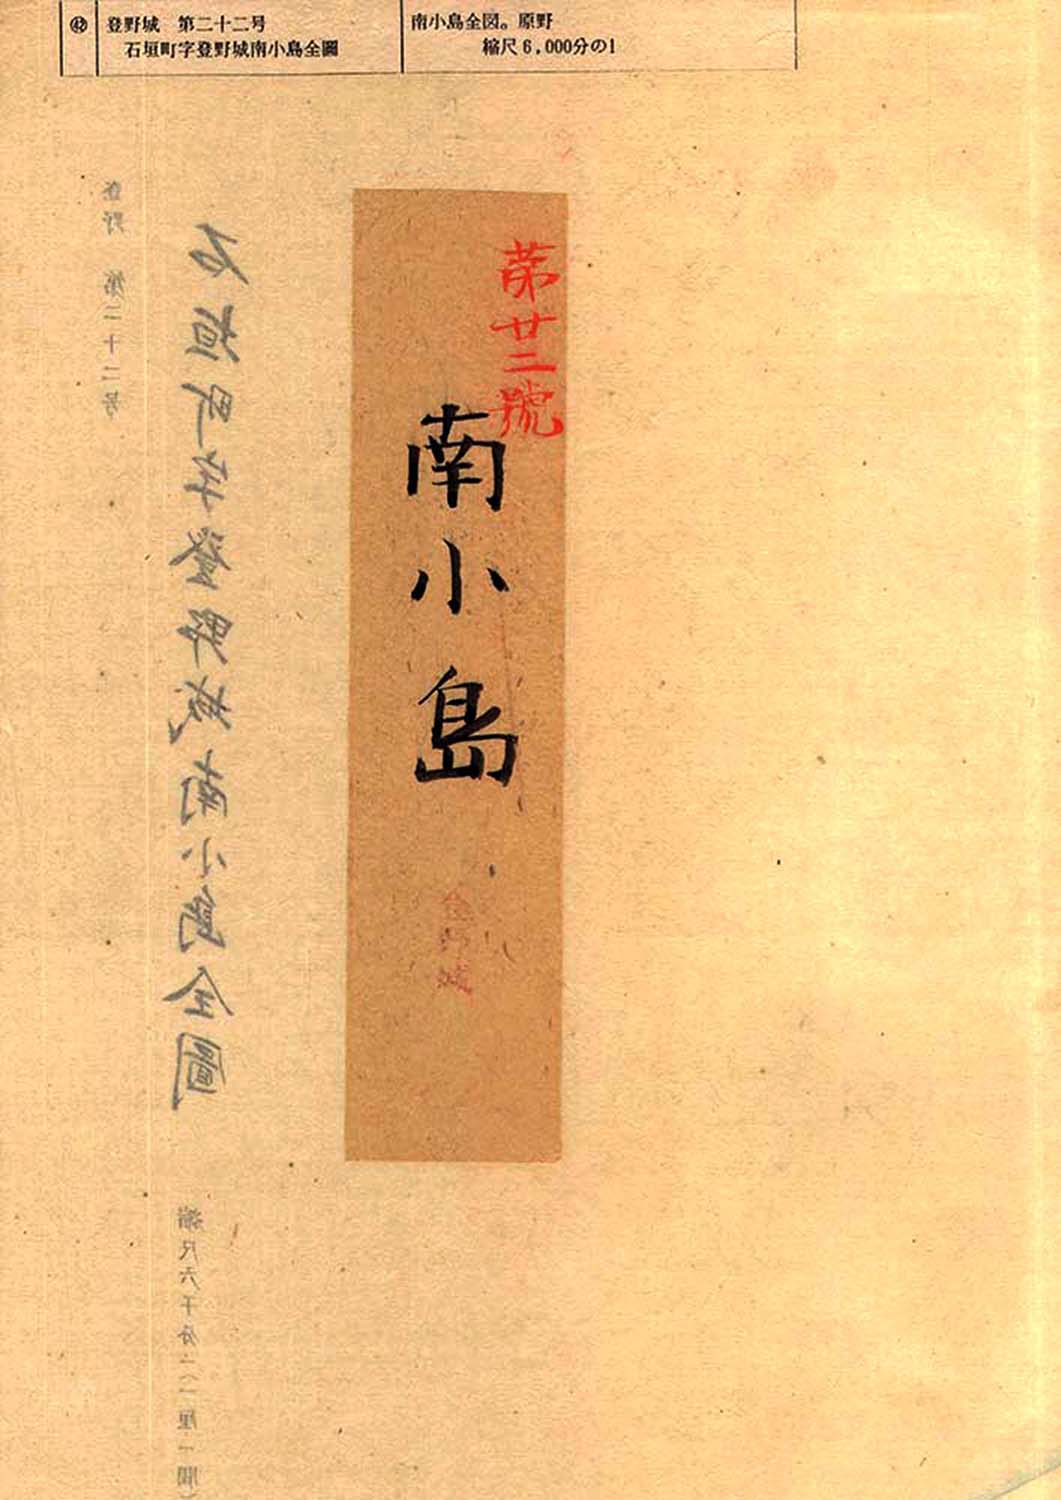 ㊷
登野城 第二十二号
石垣町字登野城南小島全圖
南小島全図。原野
縮尺6,000分の1
第廿二號
南小島
登野城
石垣町字登野城南小島全圖
登野 第二十二号
縮尺六千分ノ一(一厘一間)